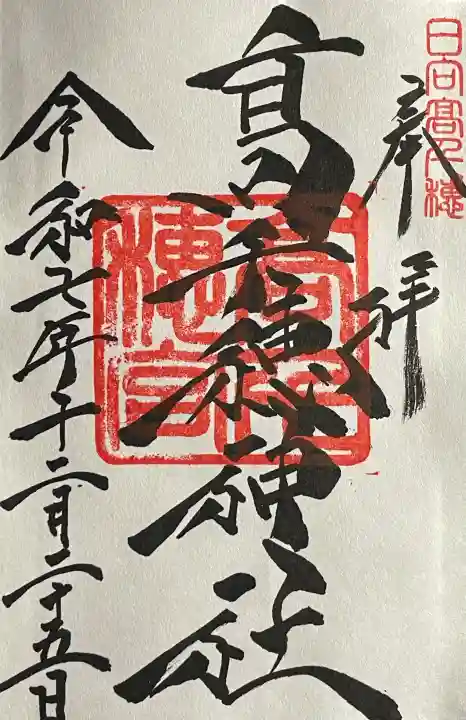 日向高千穂
奉拝
高千穂神社
令和七年十二月二十五日